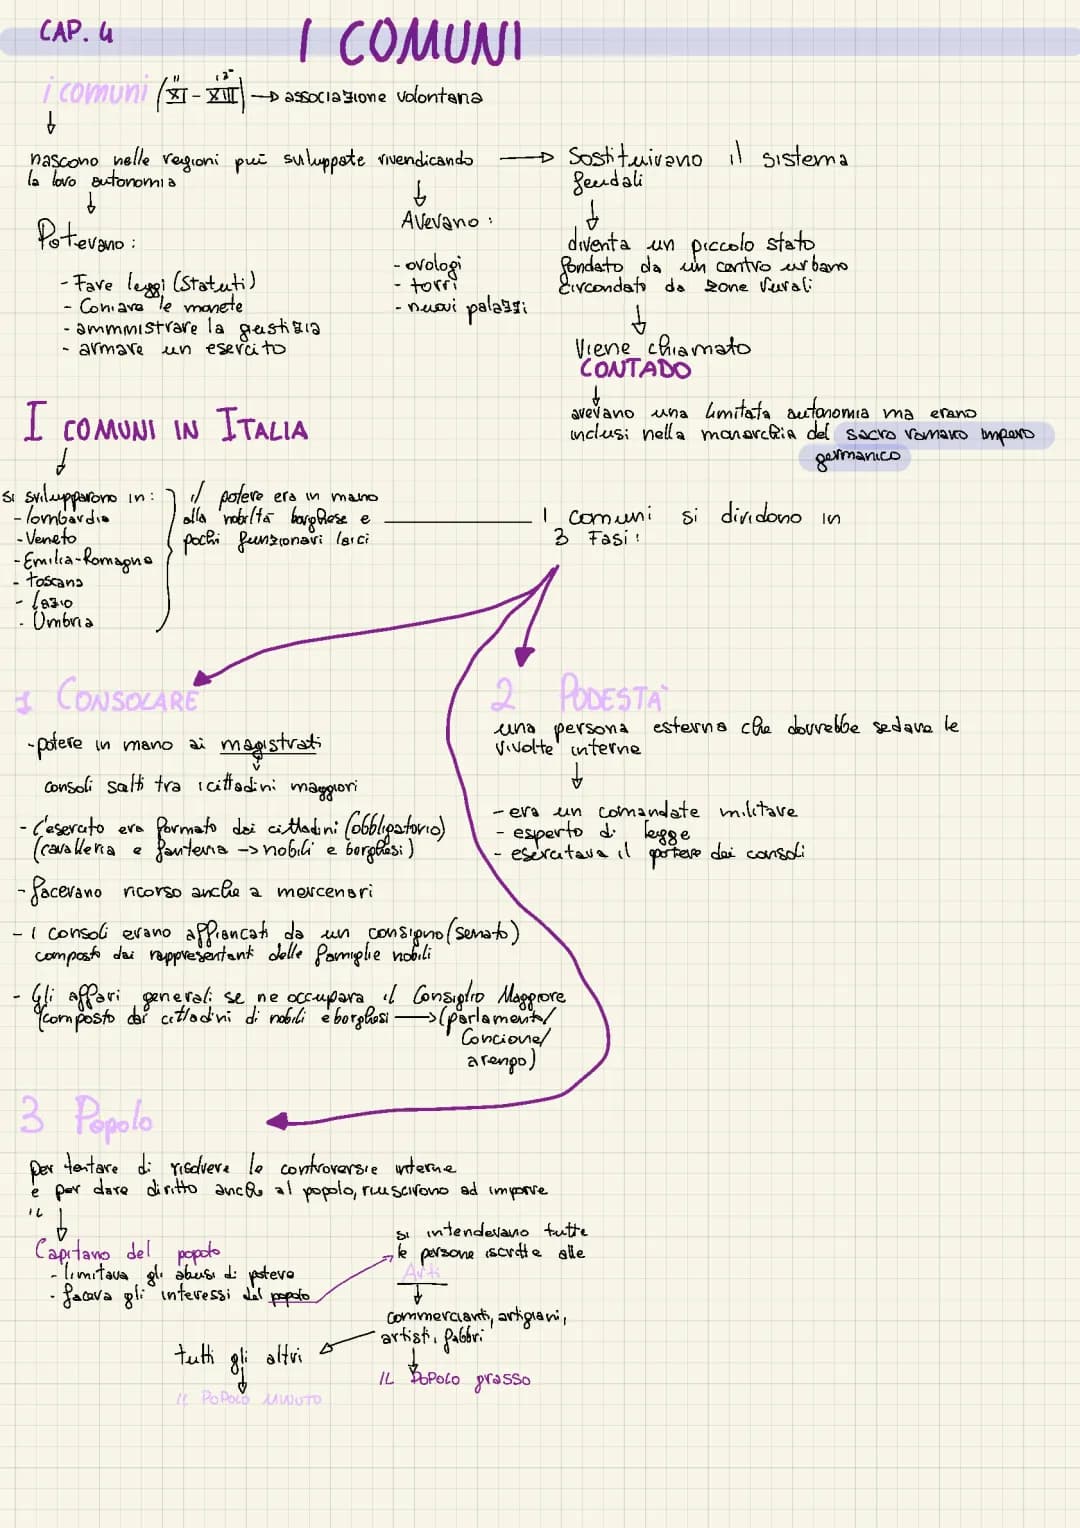 CAP. 4
I COMUNI
i comuni (XI - XIII) → associazione volontaria
11 13°
nascono nelle regioni più sviluppate rivendicando
la loro autonomia
Potevano :
- Fare leggi (Statuti)
- Coniare le monete
- ammministrare la giustizia
- armare un esercito
Avevano :
- orologi
- torri
- nuovi palazzi
→ Sostituivano il sistema
feudali
diventa un piccolo stato
fondato da un centro urbano
circondato da zone rurali
Viene chiamato
CONTADO
avevano una limitata autonomia ma erano
inclusi nella monarchia del sacro romano impero
germanico
I COMUNI IN ITALIA
si svilupparono in :
- lombardia
- Veneto
- Emilia-Romagna
- toscana
- lazio
- Umbria
il potere era in mano
alla nobiltà borghese e
pochi funzionari laici
I comuni si dividono in
3 Fasi :
1 CONSOLARE
- potere in mano ai magistrati
consoli salti tra i cittadini maggiori
- l'esercito era formato dai cittadini (obbligatorio)
(cavalleria e fanteria -> nobili e borghesi)
- facevano ricorso anche a mercenari
- I consoli erano affiancati da un consigno (senato)
composto dai rappresentanti delle famiglie nobili
- Gli affari generali se ne occupava il Consiglio Maggiore
(composto dai cittadini di nobili e borghesi → (parlamento/
Concione/
arengo)
2 PODESTÀ
una persona esterna che dovrebbe sedare le
rivolte interne
- era un comandate militare
- esperto di legge
- esercitava il potere dei consoli
3 Popolo
per tentare di risolvere le controversie interne
e per dare diritto anche al popolo, riuscirono ad imporre
IL
Capitano del popolo
- limitava gli abusi di potere
- faceva gli interessi del popolo
si intendevano tutte
le persone iscritte alle
Arti
commercianti, artigiani,
artisti, fabbri
IL POPOLO grasso
tutti gli altri
IL POPOLO MINUTO